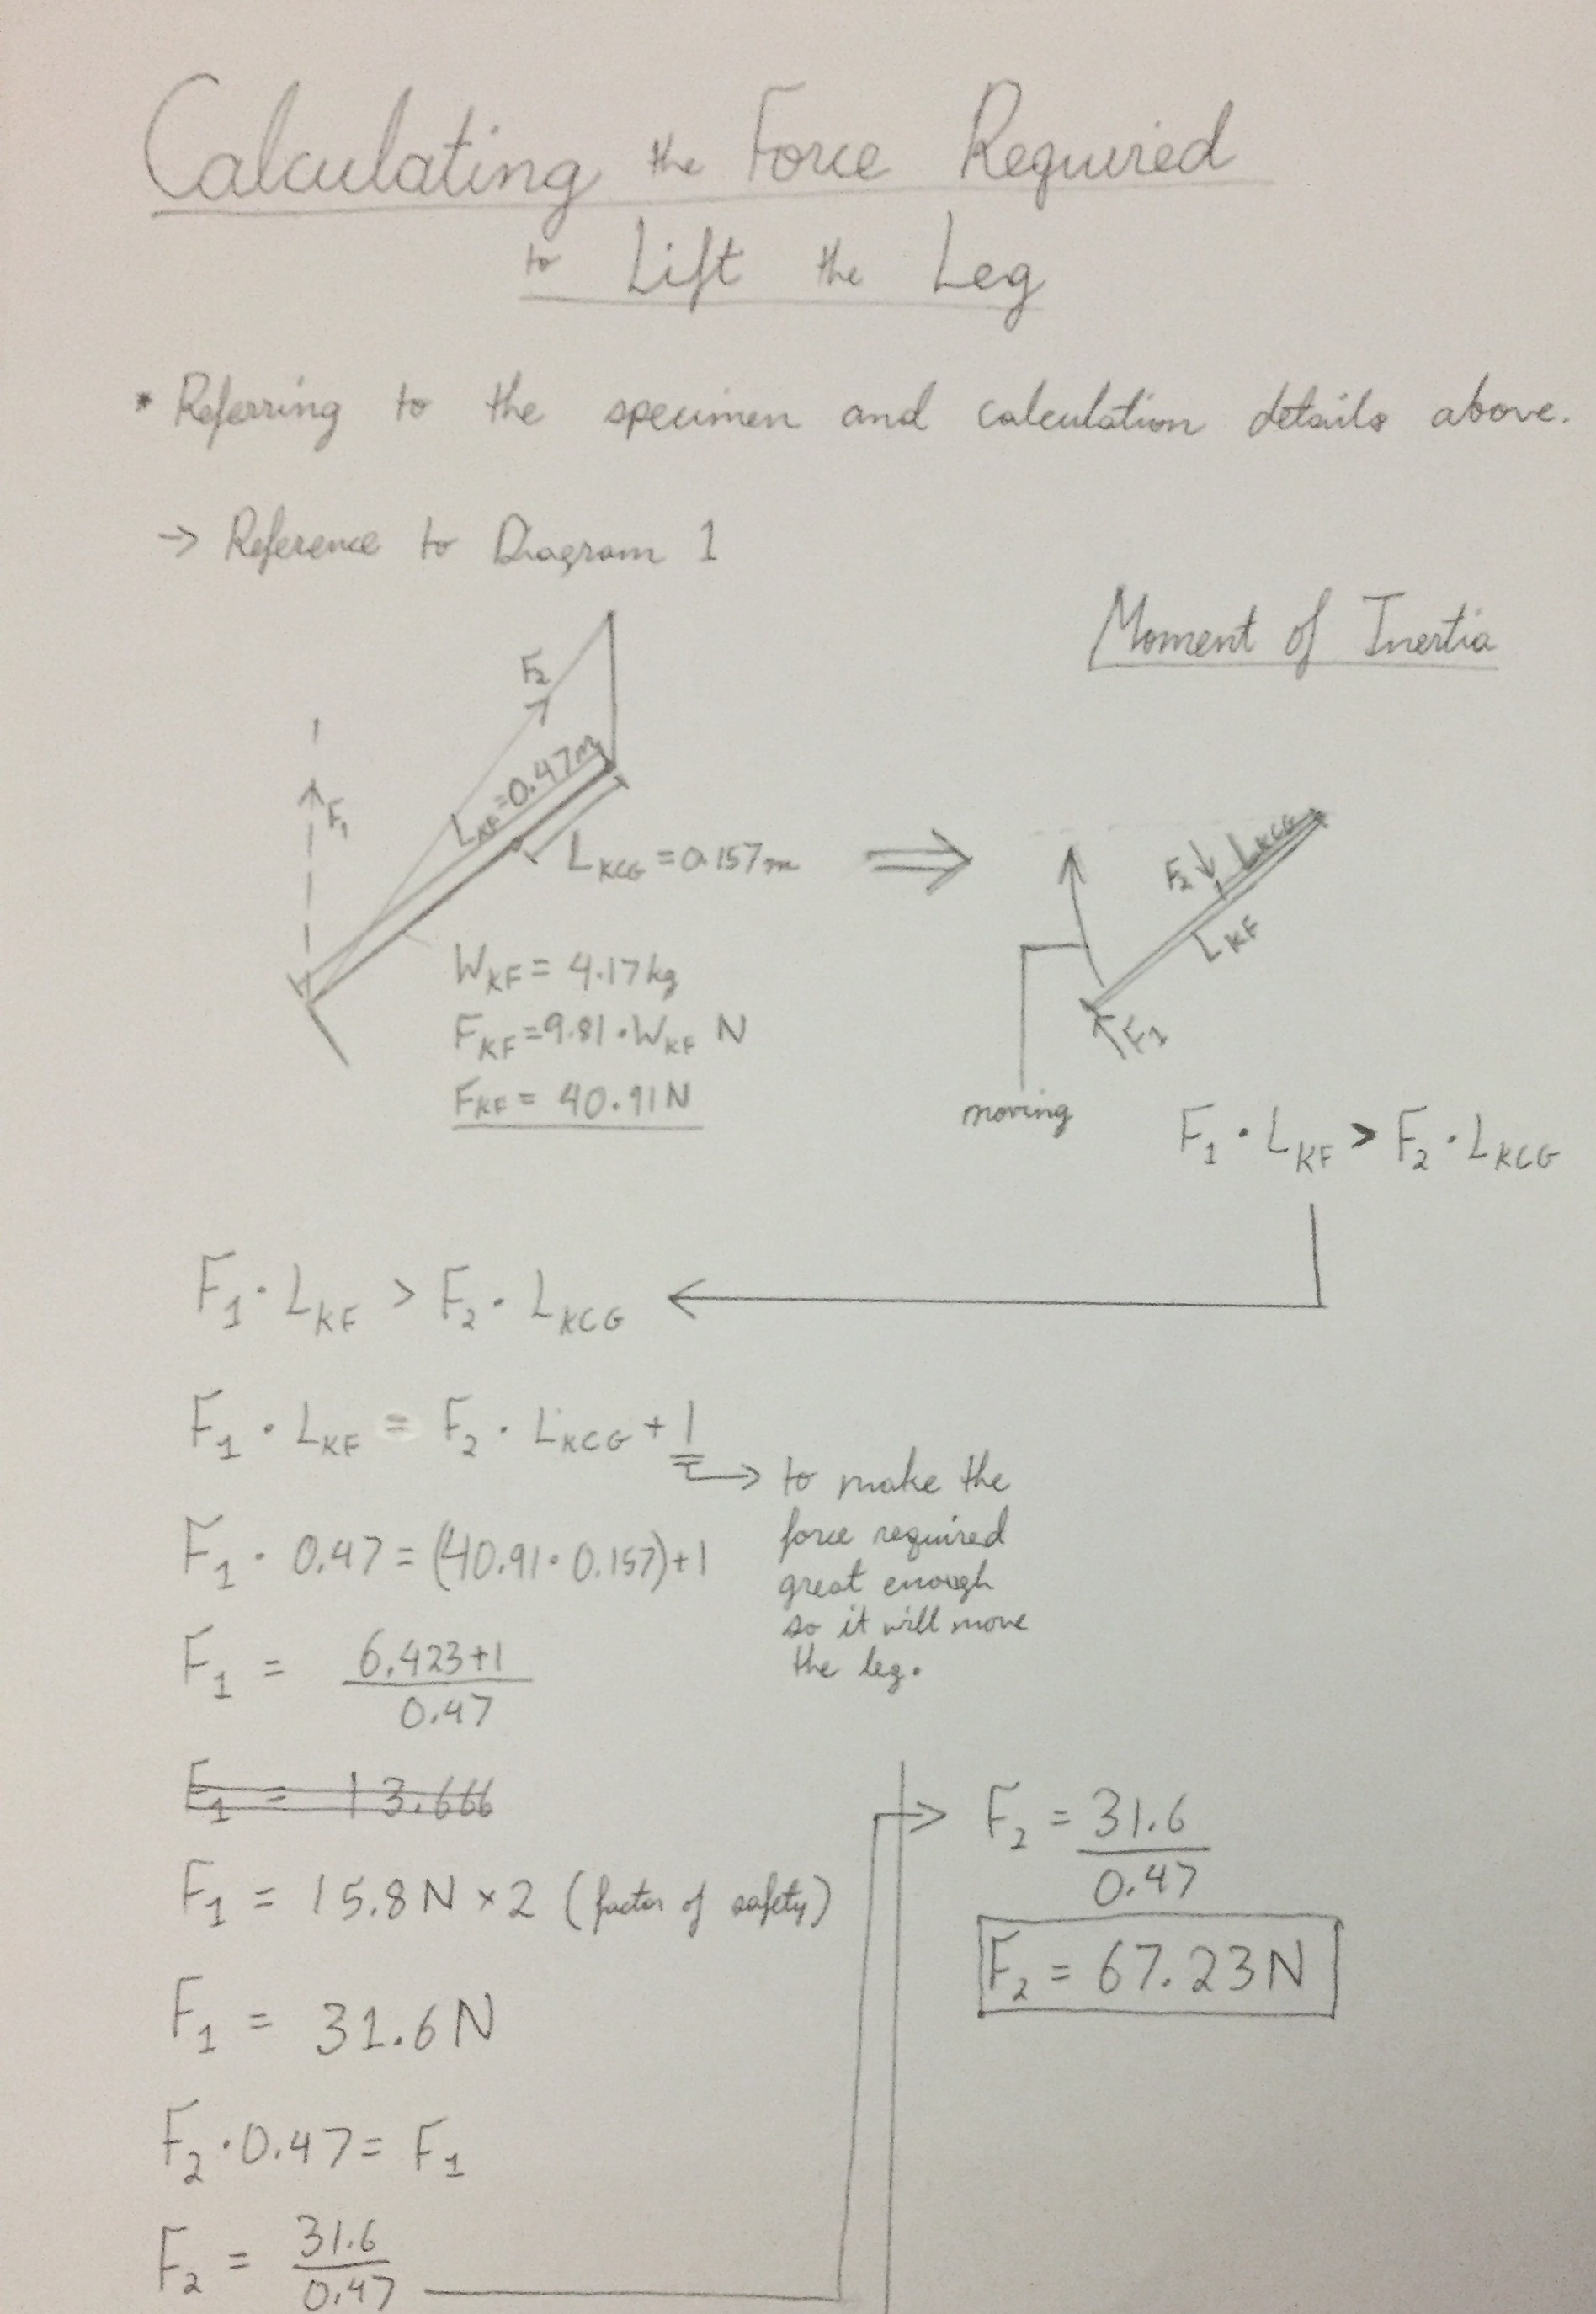 Calculating the Force Required
to Lift the Leg
* Referring to the specimen and calculation details above.
→ Reference to Diagram 1
Moment of Inertia
F₂
F₁
L_KF=0.47m
L_KCG=0.157m
W_KF = 4.17kg
F_KF=9.81·W_KF N
F_KF = 40.91N
F₂ L_KCG
L_KF
F₁
moving
F₁ · L_KF > F₂ · L_KCG
F₁ · L_KF > F₂ · L_KCG
F₁ · L_KF = F₂ · L_KCG + 1
to make the
force required
great enough
so it will move
the leg.
F₁ · 0.47 = (40.91·0.157)+1
F₁ = 6.423+1
0.47
F₁ = 13.666
F₁ = 15.8N × 2 (factor of safety)
F₁ = 31.6N
F₂ · 0.47 = F₁
F₂ = 31.6
0.47
F₂ = 31.6
0.47
F₂ = 67.23N